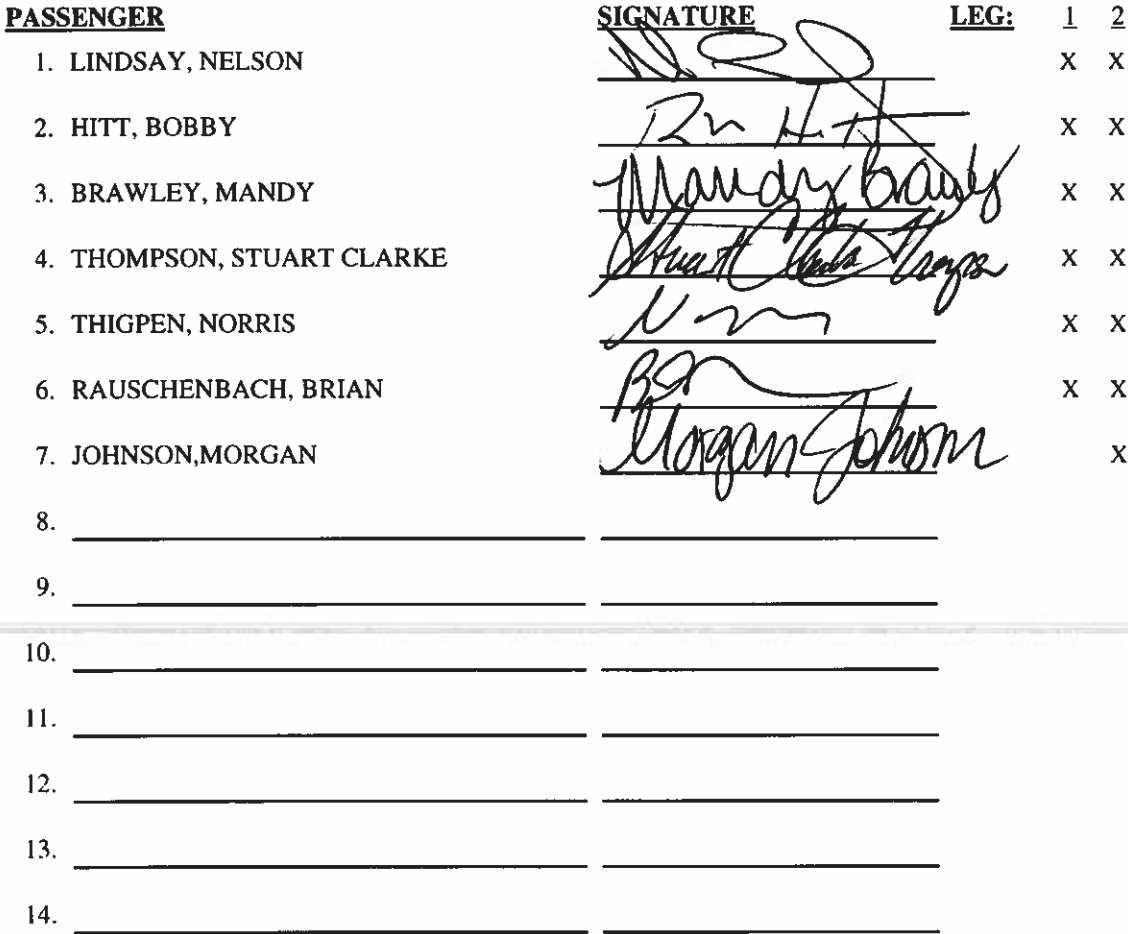 PASSENGER SIGNATURE LEG: 1 2
1. LINDSAY, NELSON X X
2. HITT, BOBBY X X
3. BRAWLEY, MANDY Mandy Brawley X X
4. THOMPSON, STUART CLARKE Stuart Clarke Thompson X X
5. THIGPEN, NORRIS X X
6. RAUSCHENBACH, BRIAN X X
7. JOHNSON,MORGAN Morgan Johnson X
8.
9.
10.
11.
12.
13.
14.